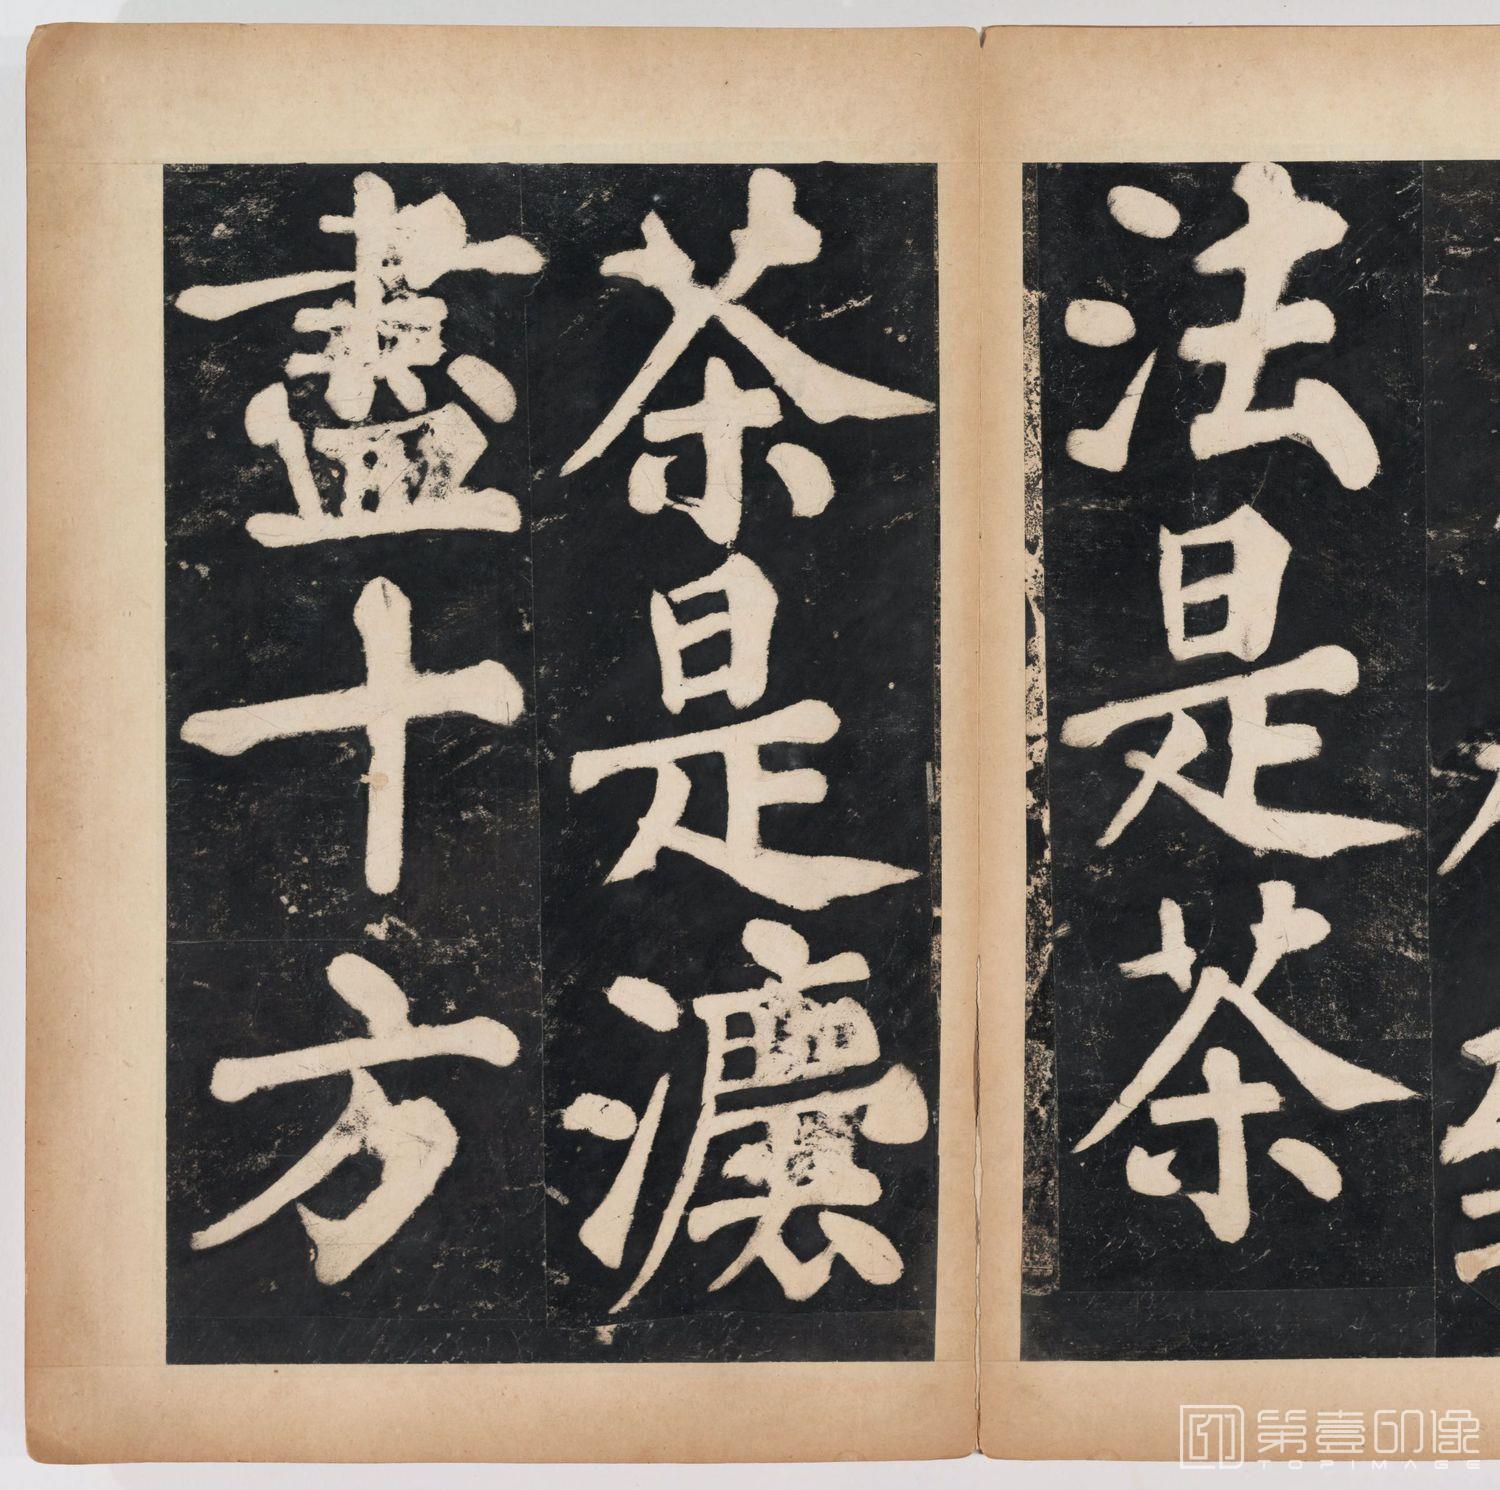 法是茶
茶是灋
盡十方
第壹印像
TOPIMAGE